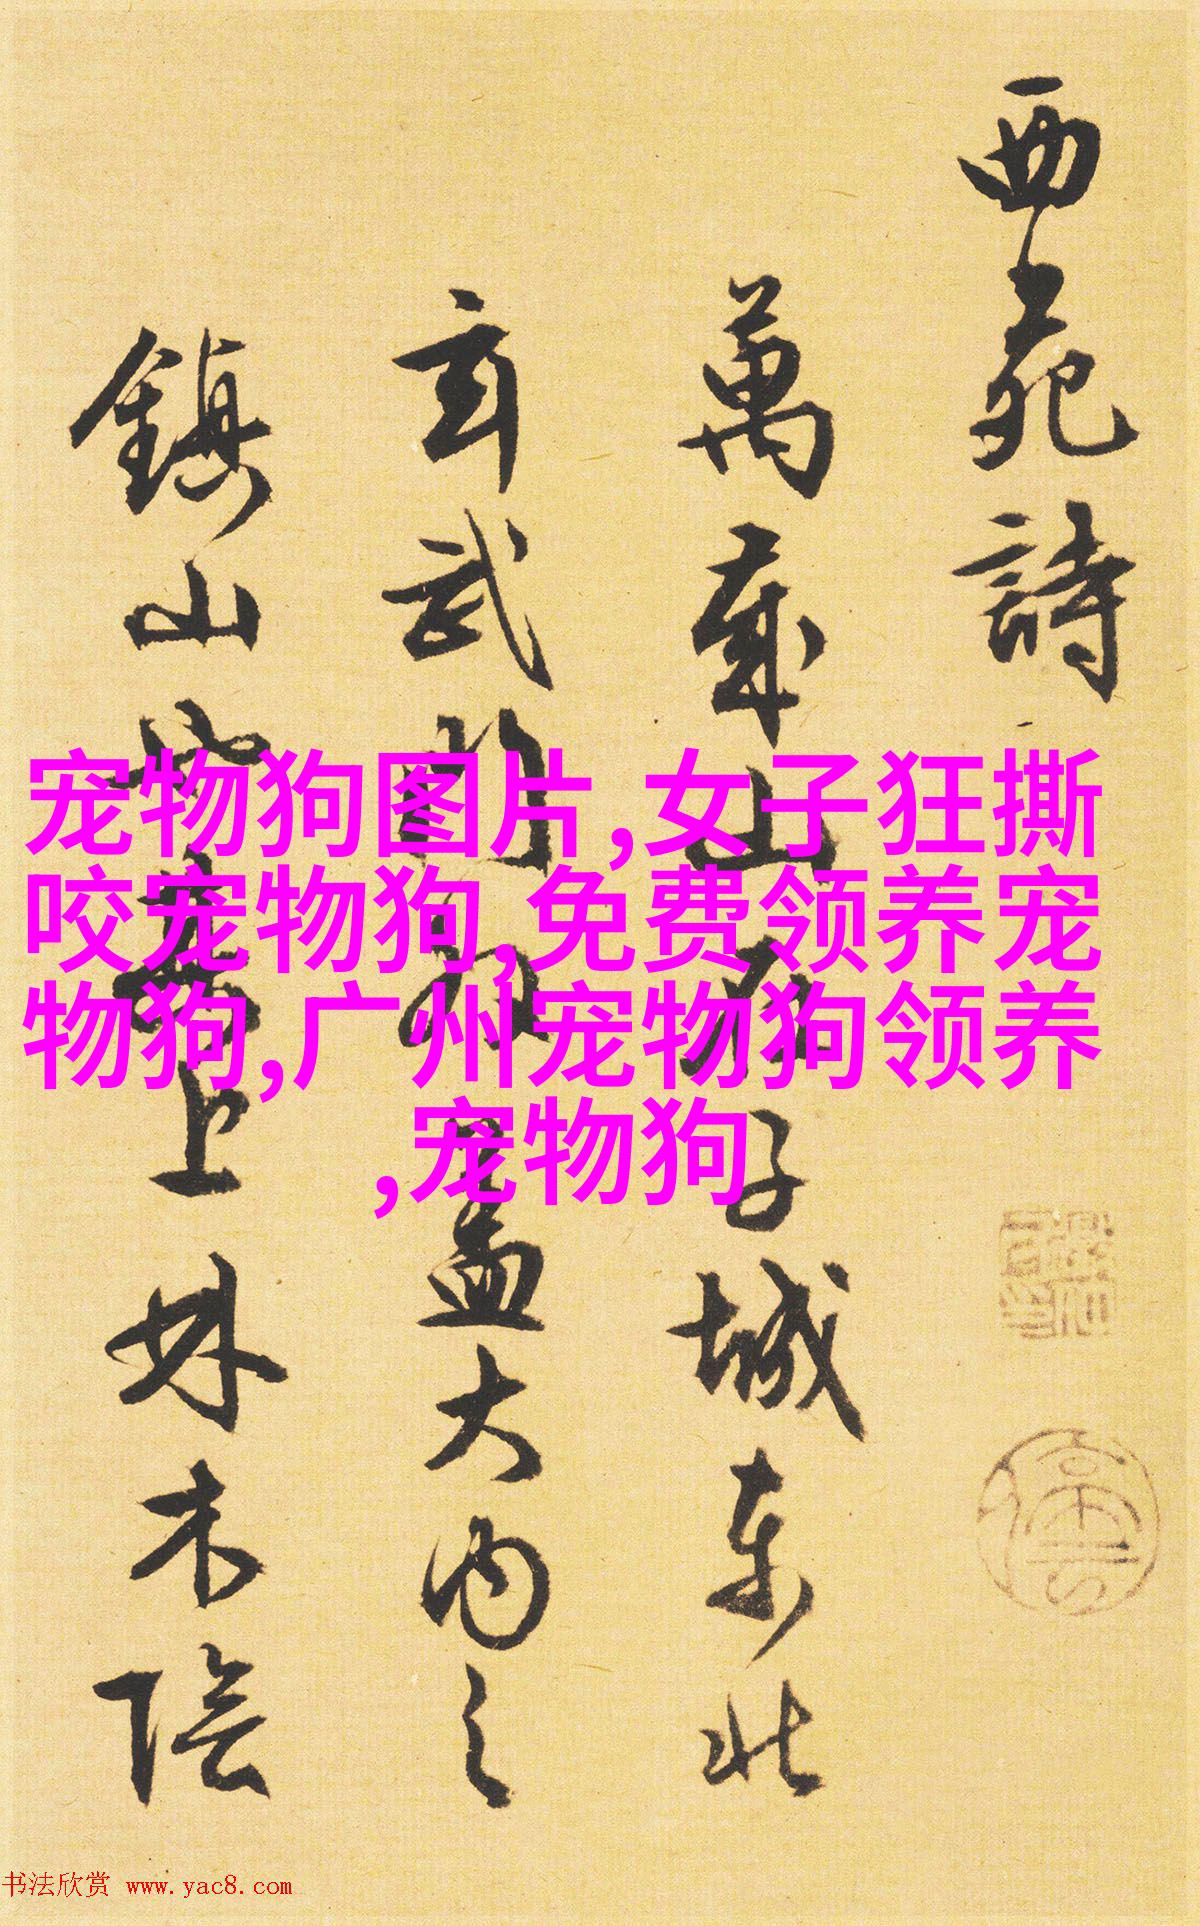 西苑詩
萬歲山在子城東北
玄武門外
盖大內之
鎮山也其上林木陰
宠物狗图片,女子狂撕
咬宠物狗,免费领养宠
物狗,广州宠物狗领养
,宠物狗
书法欣赏 www.yac8.com